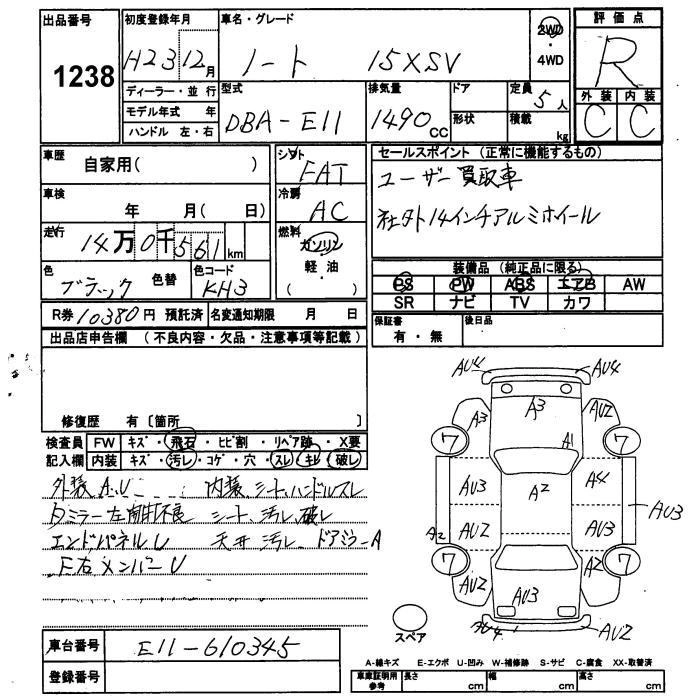 出品番号 1238
初度登録年月 H23 12月
車名・グレード ノート 15XSV
2WD ・ 4WD
評価点 R
外装 C 内装 C
ディーラー・並行
モデル年式 年
ハンドル 左・右
型式 DBA-E11
排気量 1490CC
ドア 形状
定員 5人
積載 kg
車歴 自家用( )
車検 年 月( 日)
走行 14万0千561km
色 ブラック 色替 色コード KH3
シフト FAT
冷房 AC
燃料 ガソリン 軽・油 ( )
セールスポイント (正常に機能するもの)
ユーザー買取車
社外14インチアルミホイール
装備品 (純正品に限る)
PS PW ABS エアB AW
SR ナビ TV カワ
保証書 有・無
後日品
R券 10380円 預託済 名変通知期限 月 日
出品店申告欄 (不良内容・欠品・注意事項等記載)
修復歴 有〔箇所 〕
検査員 FW キズ・飛石・ヒビ割・リペア跡・X要
記入欄 内装 キズ・汚レ・コゲ・穴・スレ・キレ・破レ
外装 A、U 内装、シート、ハンドルスレ
ミラー左 不良 シート、汚レ、破レ
エンドパネルU 天井 汚レ、ドアミラーA
F右メンバーU
車台番号 E11-610345
登録番号
AU4 AU4
A3 A3 AU2
7 A1 7
AU3 A2 A4
AU3
A2 AU2 AU3
7 A2 7
AU2 AU3 AU2
AU4 AU2
スペア
A-線キズ E-エクボ U-凹み W-補修跡 S-サビ C-腐食 XX-取替済
車庫証明用参考 長さ cm 幅 cm 高さ cm